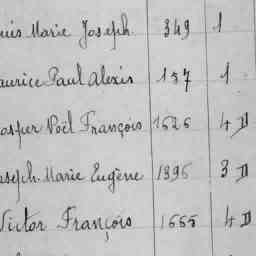 uis Marie Joseph 349 1
aurice Paul Alexis 157 1
asper Poël François 1526 4 D
oseph Marie Eugène 1396 3 D
Victor François 1555 4 D